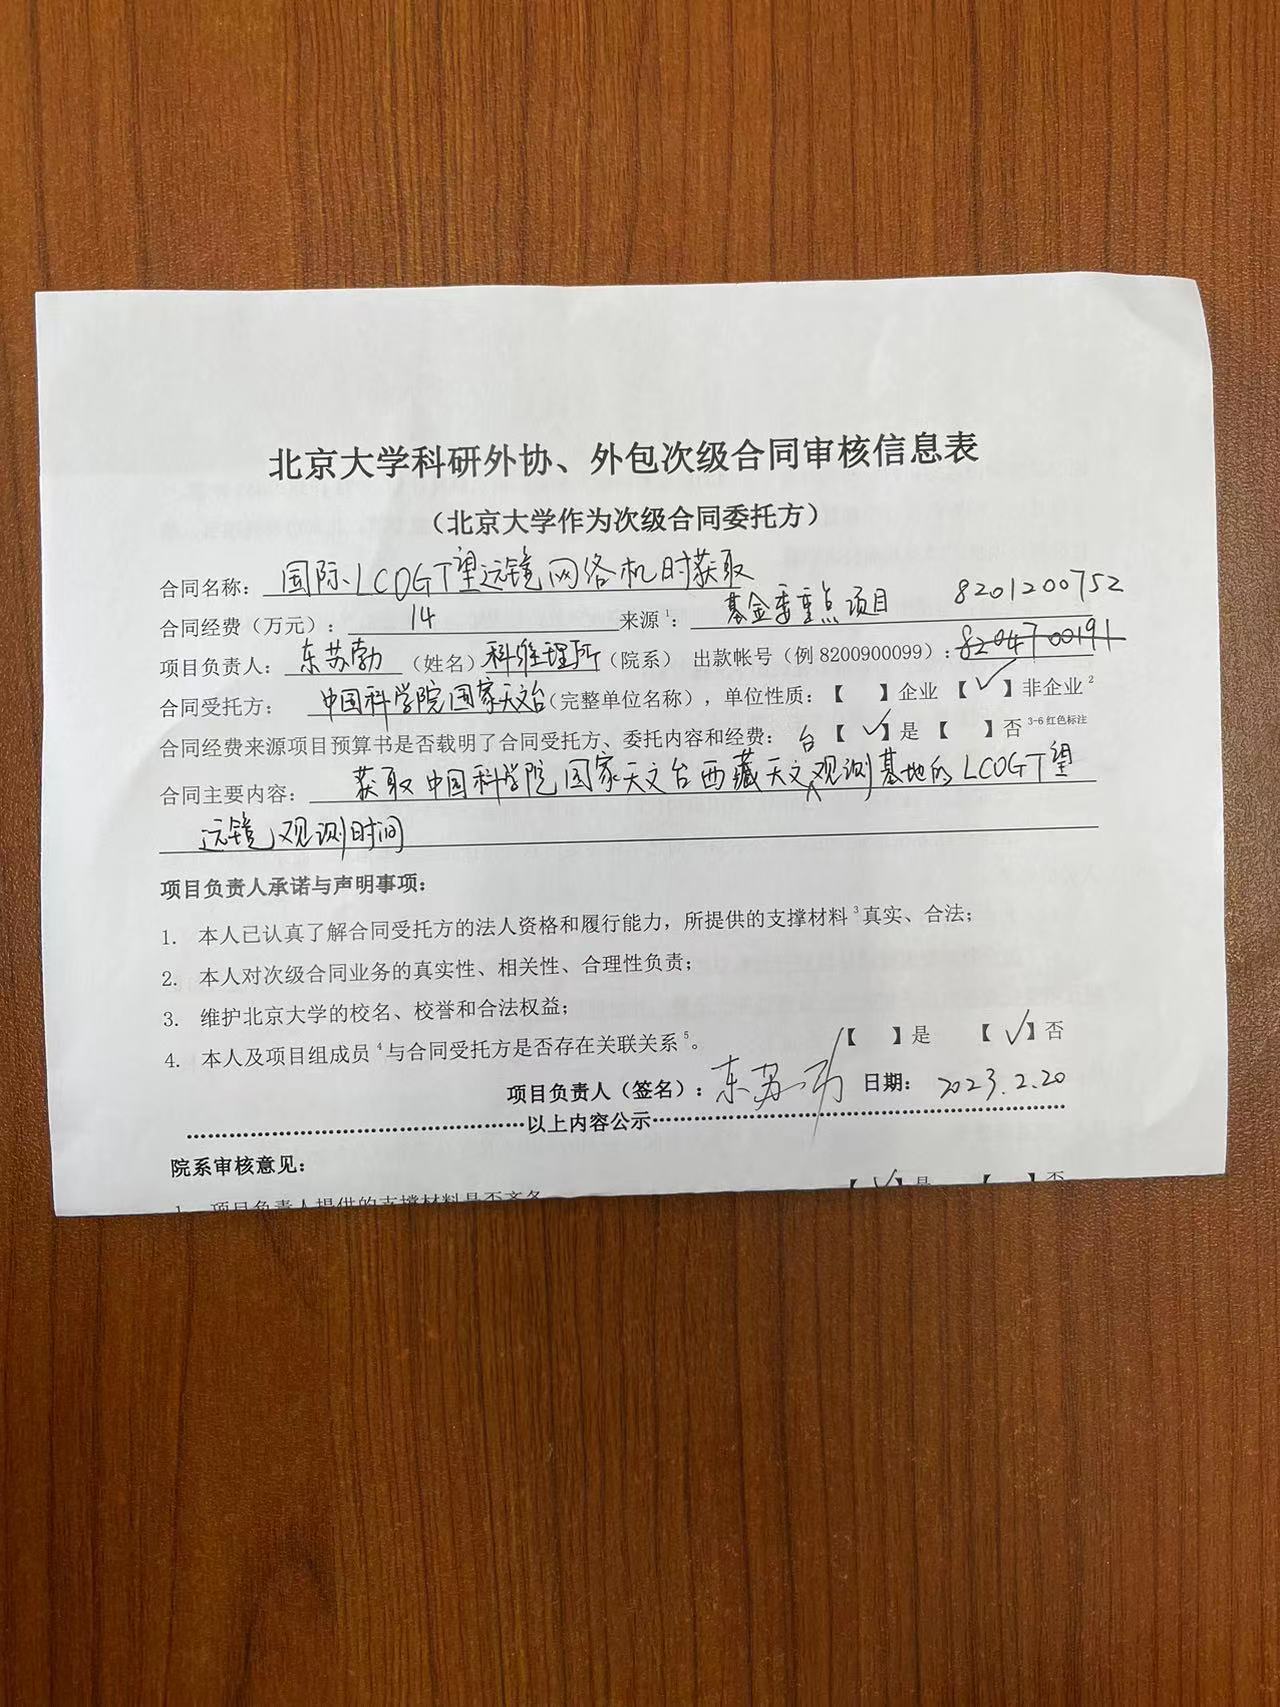 北京大学科研外协、外包次级合同审核信息表
（北京大学作为次级合同委托方）
合同名称：国际LCOGT望远镜网络机时获取
合同经费（万元）：14 来源1：基金委重点项目 8201200752
项目负责人：东苏勃（姓名）科维理所（院系） 出款帐号（例8200900099）：8204700191
合同受托方：中国科学院国家天文台（完整单位名称），单位性质：【 】企业【√】非企业2
合同经费来源项目预算书是否载明了合同受托方、委托内容和经费：【√】是【 】否 3-6红色标注
合同主要内容：获取中国科学院国家天文台西藏天文台观测基地的LCOGT望
远镜观测时间
项目负责人承诺与声明事项：
1. 本人已认真了解合同受托方的法人资格和履行能力，所提供的支撑材料3真实、合法；
2. 本人对次级合同业务的真实性、相关性、合理性负责；
3. 维护北京大学的校名、校誉和合法权益；
4. 本人及项目组成员4与合同受托方是否存在关联关系5。【 】是 【√】否
项目负责人（签名）：东苏勃 日期：2023.2.20
以上内容公示
院系审核意见：
1. 项目负责人提供的支撑材料是否齐备 【√】是 【 】否